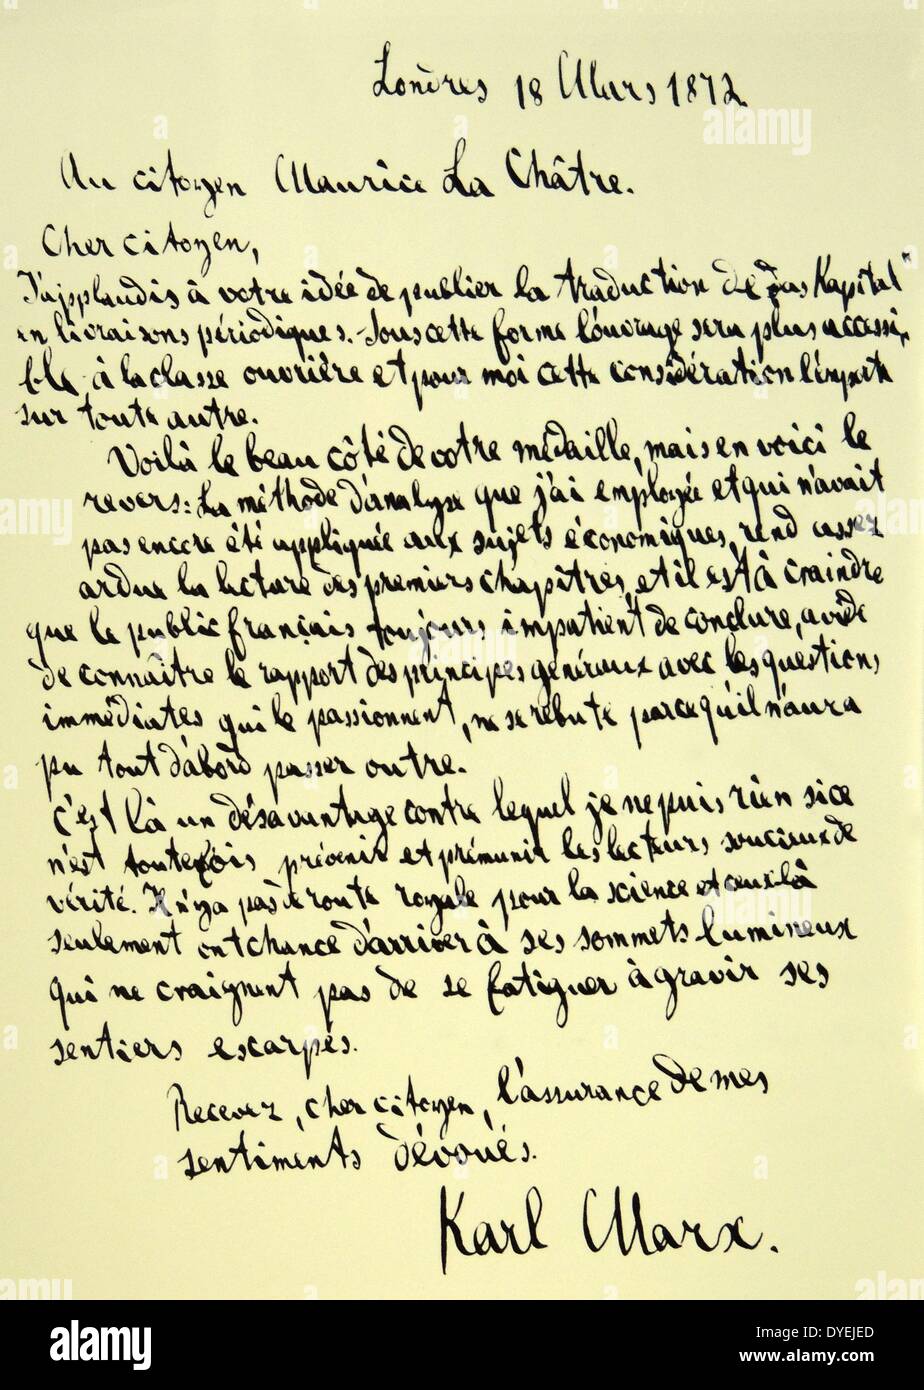 Londres 18 Mars 1872
Au citoyen Maurice La Châtre.
Cher citoyen,
J'applaudis à votre idée de publier la traduction de „Das Kapital"
en livraisons périodiques. Sous cette forme l'ouvrage sera plus accessi,
ble à la classe ouvrière et pour moi cette considération l'emporte
sur toute autre.
Voilà le beau côté de votre médaille, mais en voici le
revers: La méthode d'analyse que j'ai employée et qui n'avait
pas encore été appliquée aux sujets économiques, rend assez
ardue la lecture des premiers chapîtres, et il est à craindre
que le public français toujours impatient de conclure, avide
de connaître le rapport des principes généraux avec les questions
immédiates qui le passionnent, ne se rebute parcequ'il n'aura
pu tout d'abord passer outre.
C'est là un désavantage contre lequel je ne puis rien si ce
n'est toutefois prévenir et prémunir les lecteurs soucieux de
vérité. Il n'ya pas de route royale pour la science et ceux-là
seulement ont chance d'arriver à ses sommets lumineux
qui ne craignent pas de se fatiguer à gravir ses
sentiers escarpés.
Recevez, cher citoyen, l'assurance de mes
sentiments dévoués.
Karl Marx.
alamy
Image ID: DYEJED
www.alamy.com